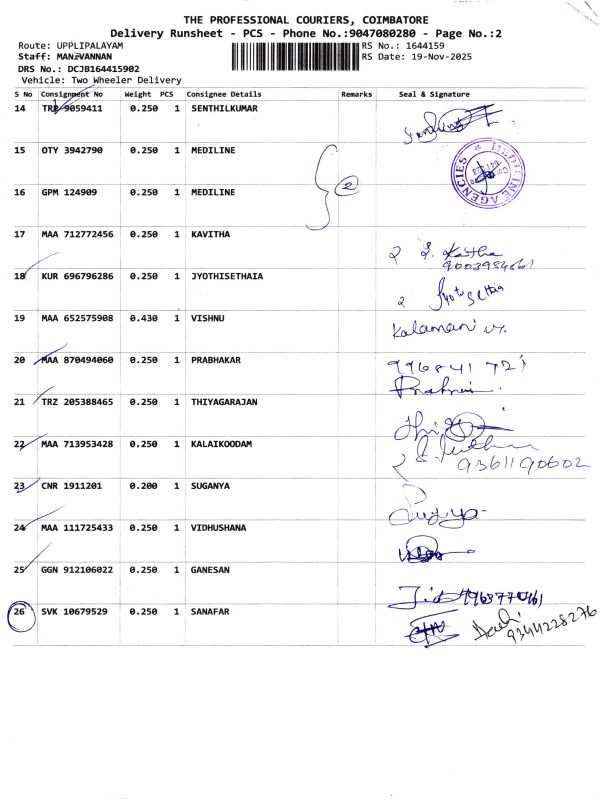 THE PROFESSIONAL COURIERS, COIMBATORE
Delivery Runsheet - PCS - Phone No.:9047080280 - Page No.:2
Route: UPPLIPALAYAM RS No.: 1644159
Staff: MANIVANNAN RS Date: 19-Nov-2025
DRS No.: DCJB164415902
Vehicle: Two Wheeler Delivery
S No Consignment No Weight PCS Consignee Details Remarks Seal & Signature
14 TRP 9059411 0.250 1 SENTHILKUMAR
15 OTY 3942790 0.250 1 MEDILINE
MEDICINE AGENCIES
16 GPM 124909 0.250 1 MEDILINE
2
17 MAA 712772456 0.250 1 KAVITHA
2
18 KUR 696796286 0.250 1 JYOTHISETHAIA
2
19 MAA 652575908 0.430 1 VISHNU
Kalamani
20 MAA 870494060 0.250 1 PRABHAKAR
21 TRZ 205388465 0.250 1 THIYAGARAJAN
22 MAA 713953428 0.250 1 KALAIKOODAM
9361190602
23 CNR 1911201 0.200 1 SUGANYA
24 MAA 111725433 0.250 1 VIDHUSHANA
25 GGN 912106022 0.250 1 GANESAN
26 SVK 10679529 0.250 1 SANAFAR
9344228276